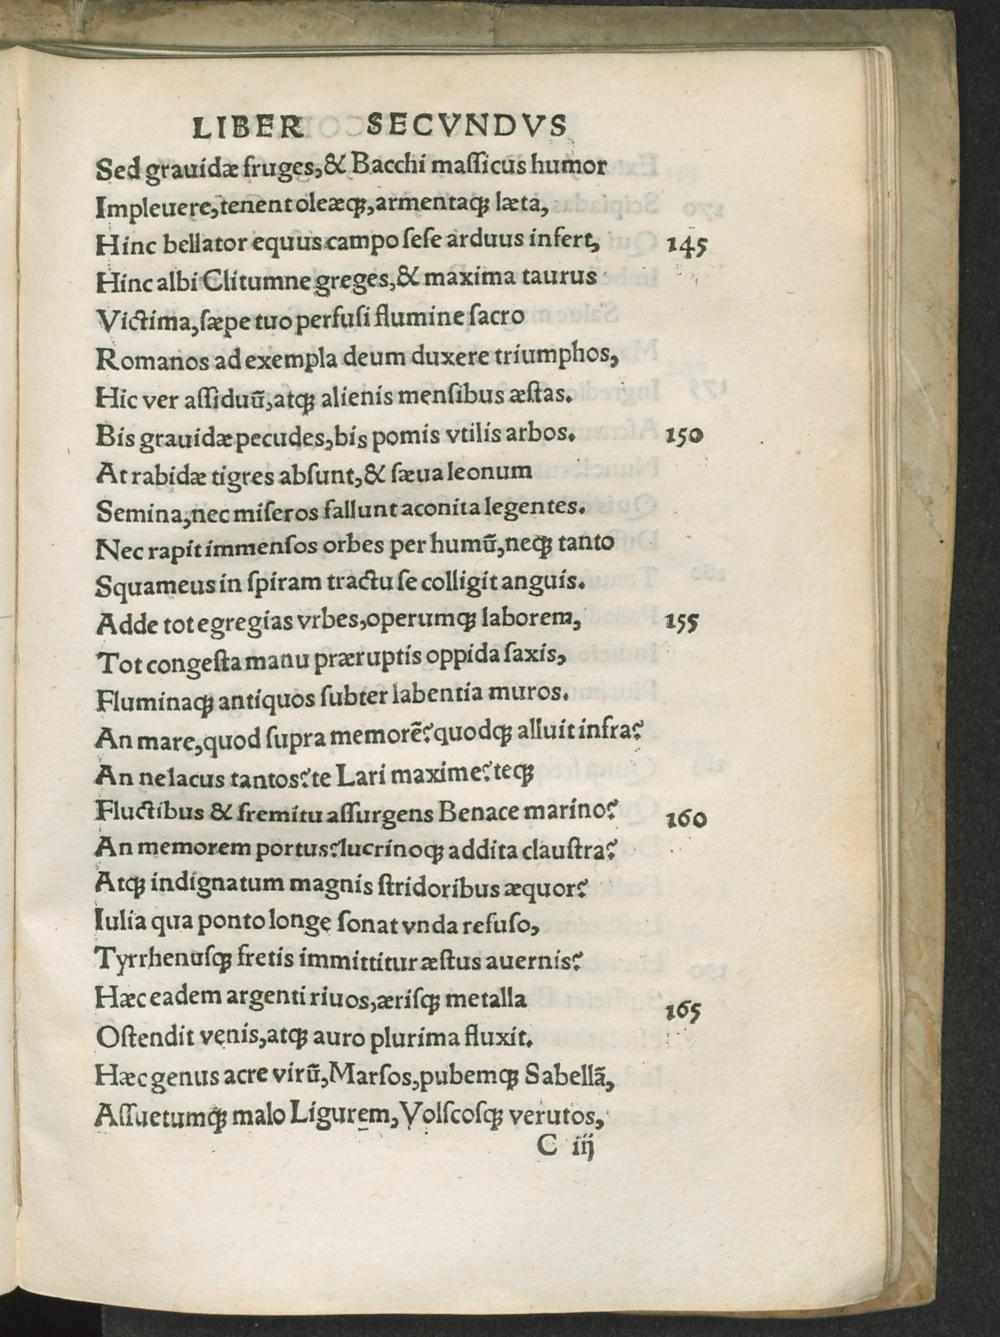 LIBER SECVNDVS
Sed grauidæ fruges,& Bacchi maſſicus humor
Impleuere,tenent oleæqꝫ,armentaqꝫ læta,
Hinc bellator equus campo ſeſe arduus infert, 145
Hinc albi Clitumne greges,& maxima taurus
Victima,ſæpe tuo perfuſi flumine ſacro
Romanos ad exempla deum duxere triumphos,
Hic ver aſſiduū,atqꝫ alienis menſibus æſtas.
Bis grauidæ pecudes,bis pomis vtilis arbos. 150
At rabidæ tigres abſunt,& ſæua leonum
Semina,nec miſeros fallunt aconita legentes.
Nec rapit immenſos orbes per humū,neqꝫ tanto
Squameus in ſpiram tractu ſe colligit anguis.
Adde tot egregias vrbes,operumqꝫ laborem, 155
Tot congeſta manu præruptis oppida ſaxis,
Fluminaqꝫ antiquos ſubter labentia muros.
An mare,quod ſupra memorē?quodqꝫ alluit infra?
An ne lacus tantos?te Lari maxime?teqꝫ
Fluctibus & fremitu aſſurgens Benace marino? 160
An memorem portus?lucrinoqꝫ addita clauſtra?
Atqꝫ indignatum magnis ſtridoribus æquor?
Iulia qua ponto longe ſonat vnda refuſo,
Tyrrhenuſqꝫ fretis immittitur æſtus auernis?
Hæc eadem argenti riuos,æriſqꝫ metalla 165
Oſtendit venis,atqꝫ auro plurima fluxit.
Hæc genus acre virū,Marſos,pubemqꝫ Sabellā,
Aſſuetumqꝫ malo Ligurem,Volſcoſqꝫ verutos,
C iij